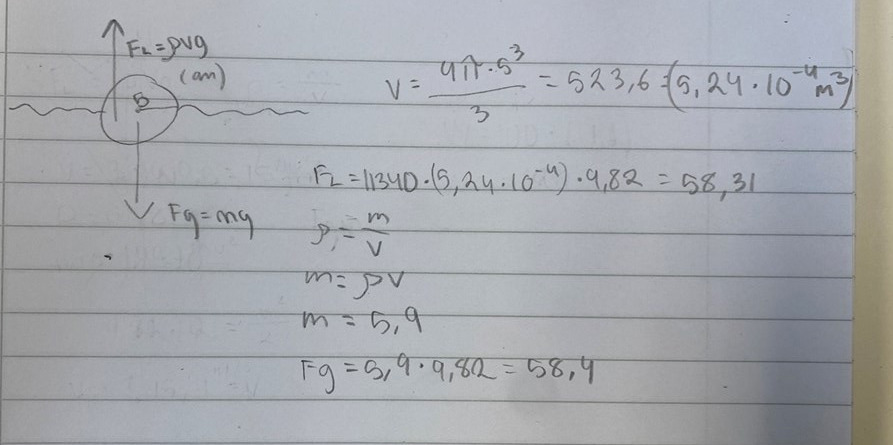 F_L = ρVg
(cm)
5
V = 4π·5³/3 = 523,6 = (5,24·10⁻⁴ m³)
F_L = 11340·(5,24·10⁻⁴)·9,82 = 58,31
Fg = mg
ρ = m/V
m = ρV
m = 5,9
Fg = 5,9·9,82 = 58,4